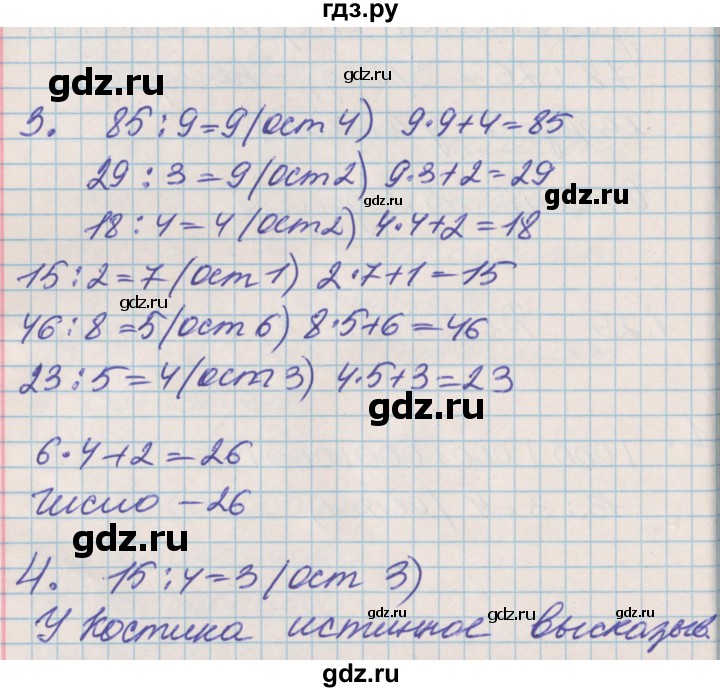 гдз.ру
gdz.ru
gdz.ru
3. 85:9=9(ост 4) 9·9+4=85
29:3=9(ост2) 9·3+2=29
gdz.ru
gdz.ru
18:4=4(ост2) 4·4+2=18
15:2=7(ост1) 2·7+1=15
gdz.ru
46:8=5(ост6) 8·5+6=46
23:5=4(ост3) 4·5+3=23
gdz.ru
6·4+2=26
число -26
gdz.ru
4. 15:4=3(ост 3)
gdz.ru
gdz.ru
gdz.ru
У Костика истинное высказыв.
gdz.ru